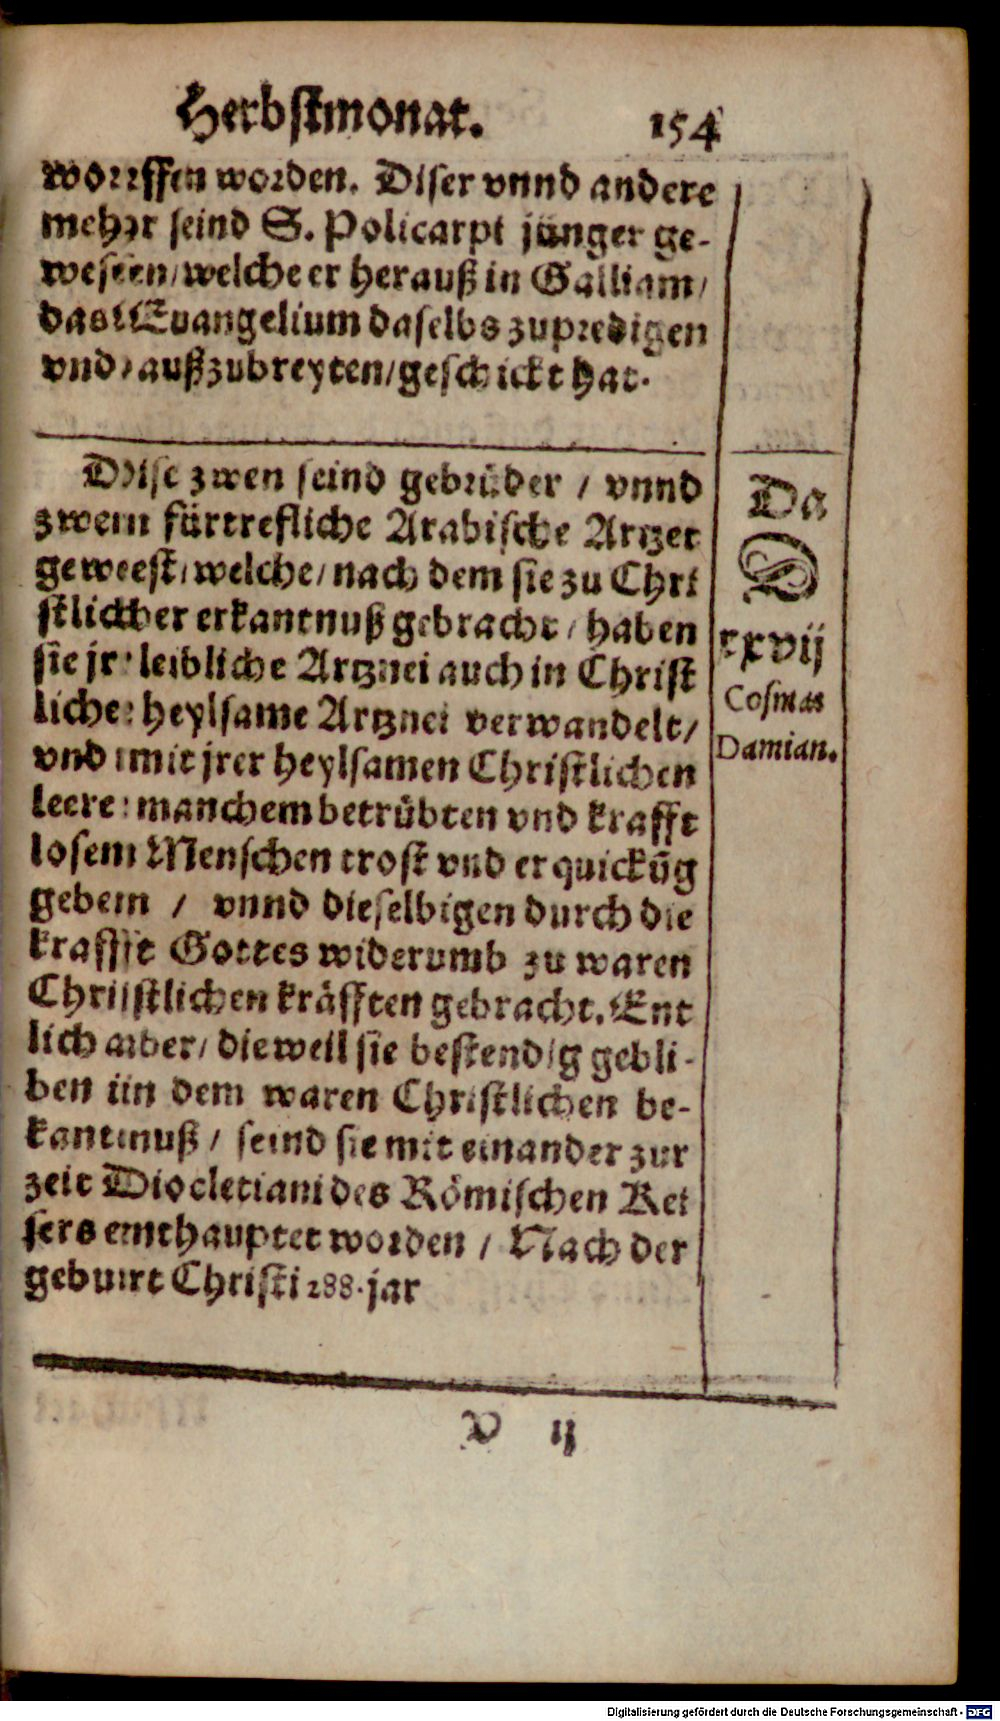 Herbstmonat. 154
worffen worden. Diser vnnd andere
mehr seind S. Policarpi jünger ge-
wesen/ welche er herauß in Galliam/
das Euangelium daselbs zupredigen
vnd außzubreyten/ geschickt hat.
Dise zwen seind gebrüder / vnnd
zwen fürtrefliche Arabische Artzet
geweest/ welche/ nach dem sie zu Chri
stlicher erkantnuß gebracht/ haben
sie jr leibliche Artznei auch in Christ
liche heylsame Artznei verwandelt/
vnd mit jrer heylsamen Christlichen
leere manchem betrübten vnd krafft
losem Menschen trost vnd erquickūg
geben / vnnd dieselbigen durch die
krafft Gottes widerumb zu waren
Christlichen kräfften gebracht. Ent
lich aber/ dieweil sie bestendig gebli-
ben in dem waren Christlichen be-
kantnuß / seind sie mit einander zur
zeit Diocletiani des Römischen Kei
sers enthauptet worden / Nach der
geburt Christi 288. jar
Da
D
xxvij
Cosmas
Damian.
V ij
Digitalisierung gefördert durch die Deutsche Forschungsgemeinschaft - DFG